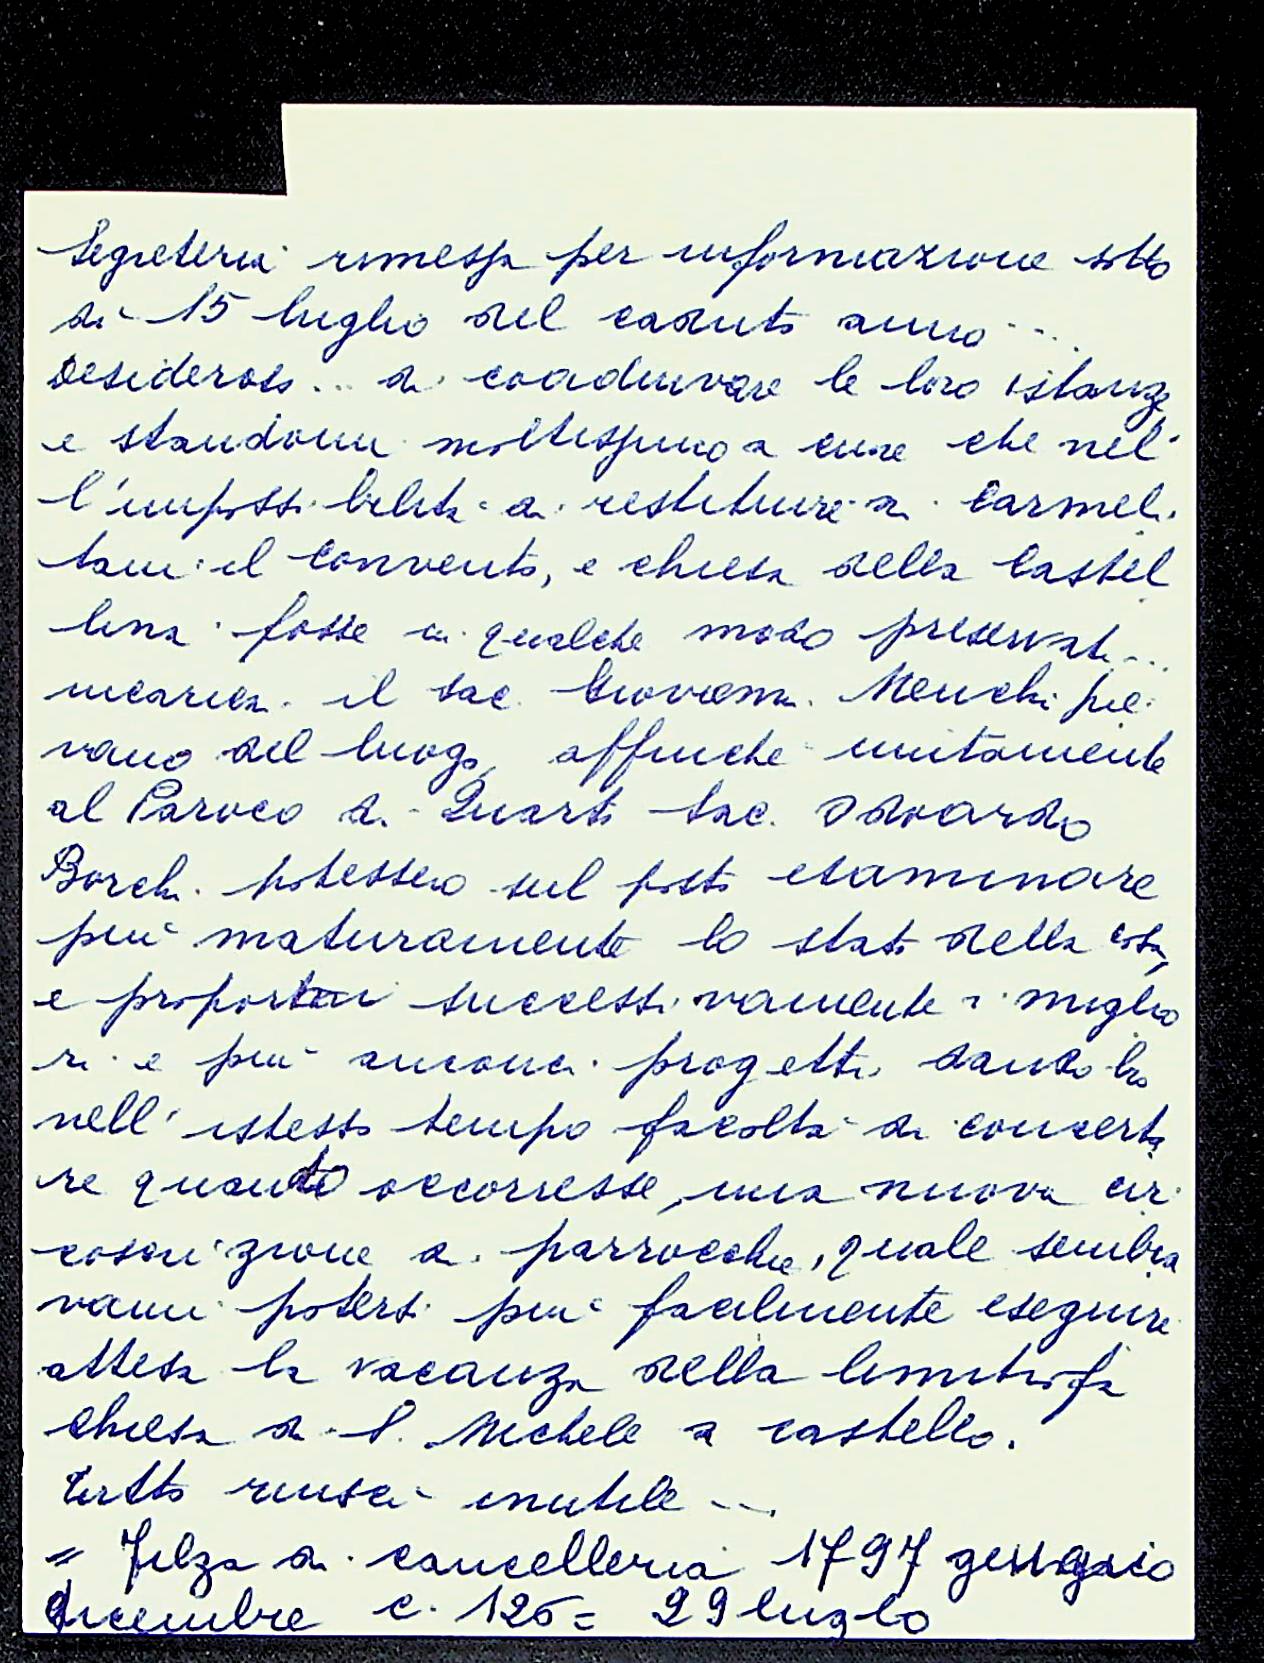 Segreteria rimessa per informazione sotto
dì 15 luglio del caduto anno ...
Desideroso... di coadiuvare le loro istanze
e standomi moltissimo a cuore che nel
l'impossibilità di restituire ai Carmeli
tani il Convento, e chiesa della Castel
lina fosse in qualche modo preservata...
incaricai il sac. Giovanni Menchi pie
vano del luogo, affinché unitamente
al Paroco di Quarto Sac. Odoardo
Borchi potessero sul posto esaminare
più maturamente lo stato della cosa,
e propormi successivamente i miglio
ri e più anconci progetti, dando loro
nell'istesso tempo facoltà di concerta
re quanto occorresse, una nuova cir
coscrizione di parrocchie, quale sembra
vami potersi più facilmente eseguire
attesa la vacanza della limitrofa
chiesa di S. Michele a Castello.
Tutto riuscì inutile ...
= Filza di cancelleria 1797 gennaio
dicembre c. 126 = 29 luglio